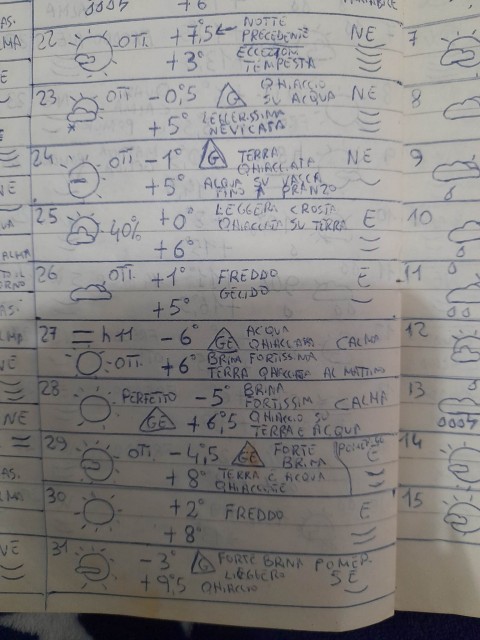 22 OTT. +7,5° ← NOTTE PRECEDENTE NE
+3° TEMPESTA
23 OTT -0,5 G GHIACCIO SU ACQUA NE
+5° LEGGERISSIMA NEVICATA
24 OTT -1° G TERRA GHIACCIATA NE
+5° ACQUA SU VASCA FINO A PRANZO
25 40% +0° LEGGERA CROSTA GHIACCIATA SU TERRA E
+6°
26 OTT +1° FREDDO GELIDO E
+5°
27 = h 11 -6° GE ACQUA GHIACCIATA CALMA
OTT. +6° BRINA FORTISSIMA
TERRA GHIACCIATA AL MATTINO
28 PERFETTO -5° BRINA FORTISSIM CALMA
GE +6,5° GHIACCIO SU TERRA E ACQUA
29 OTT -4,5° GE FORTE BRINA E
+8° TERRA E ACQUA GHIACCIATE
30 +2° FREDDO E
+8°
31 -3° G FORTE BRINA POMER.
+9,5° LEGGERO GHIACCIO SE
7
8
9
10
11
12
13
14
15